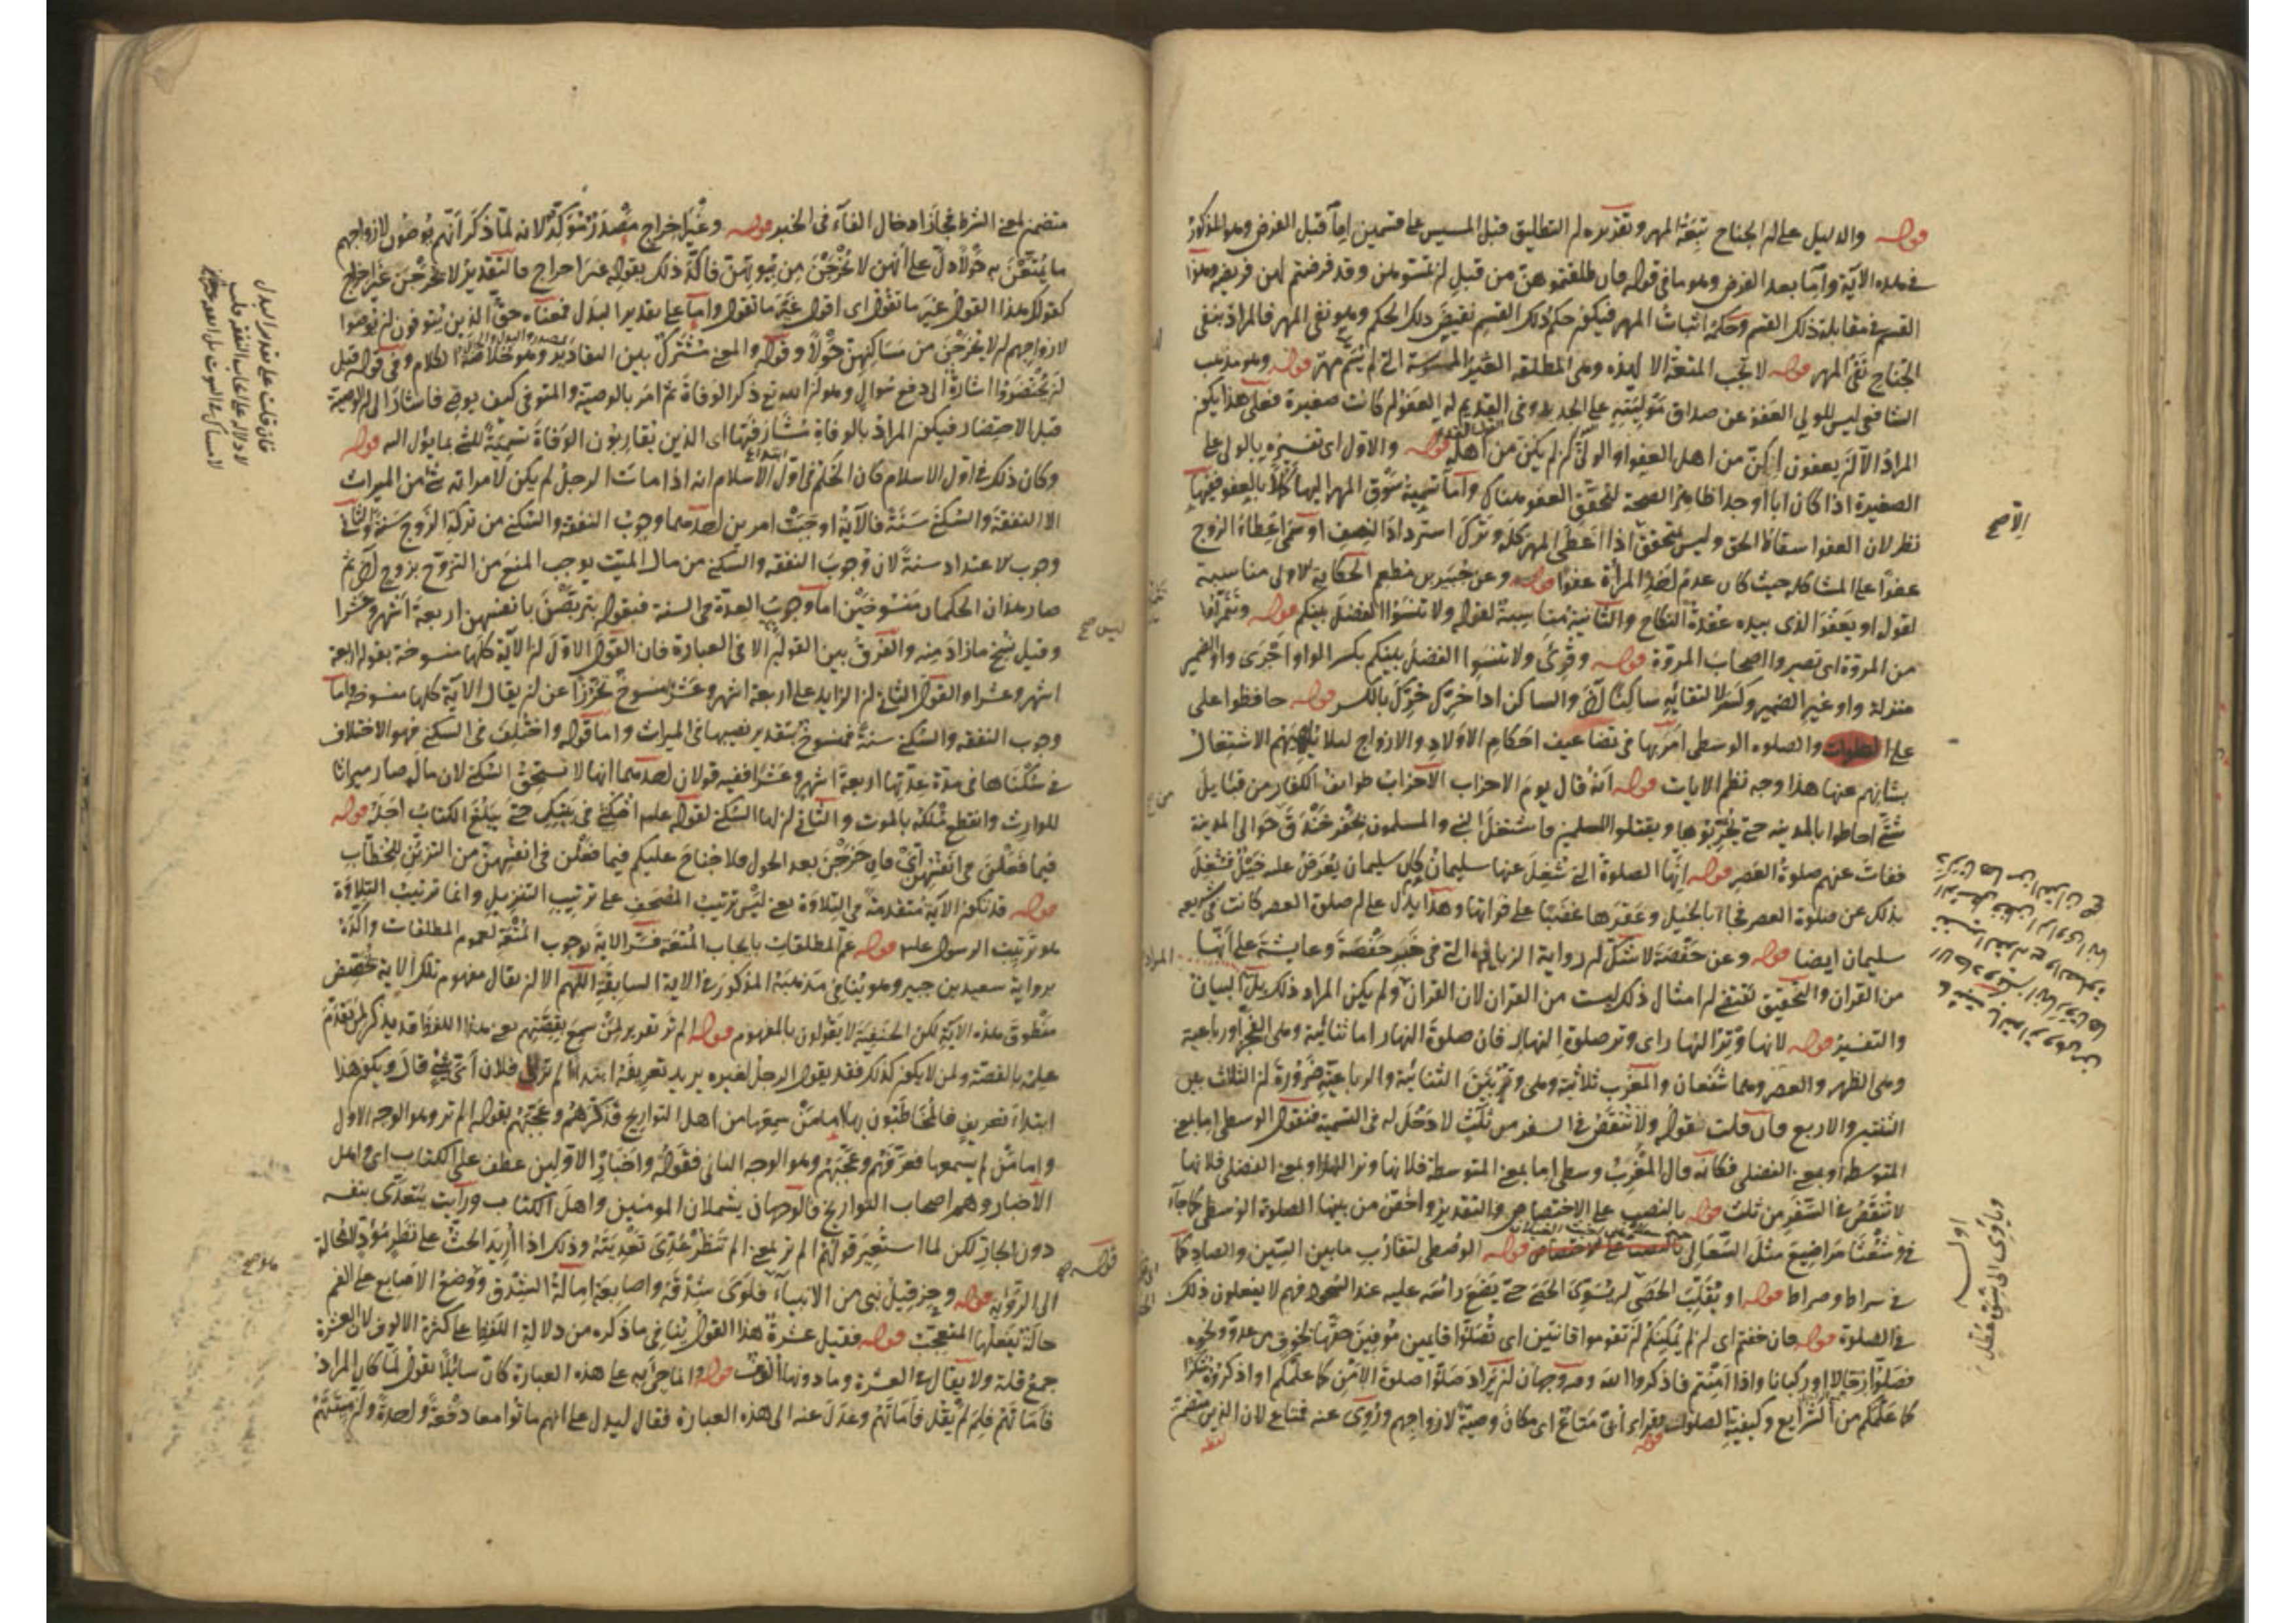 قوله والدليل على ان الجناح تبعة المهر وتقديره ان التطليق قبل المسيس على قسمين اما قبل الفرض وهو المذكور
في هذه الآية واما بعد الفرض وهو ما في قوله وان طلقتموهن من قبل ان تمسوهن وقد فرضتم لهن فريضة وهذا
القسم في مقابلة ذلك القسم وحكمه اثبات المهر فيكون حكم ذلك القسم نقيض ذلك الحكم وهو نفى المهر فالمراد بنفى
الجناح نفى المهر قوله لا تجب المتعة الا لهذه وهى المطلقة الغير الممسوسة التي لم يسم مهر قوله وهو مذهب
الشافعى ليس للولى العفو عن صداق موليته على الجديد وفى القديم له العفو ان كانت صغيرة فعلى هذا يكون
المراد الا ان يعفون ان كن من اهل العفو او الولى ان لم يكن من اهله قوله والاول اى تفسيره بالولى على
الصغيرة اذا كان ابا او جدا ظاهر الصحة لتحقق العفو هناك واما تسمية سوق المهر اليها كملا بالعفو ففيها
نظر لان العفو اسقاط الحق وليس يتحقق اذا اعطى المهر كله وترك استرداد النصف او سمى اعطاء الزوج
عفوا على المشاكلة حيث كان عدم اخذ المرأة عفوا قوله وعن جبير بن مطعم الحكاية الاولى مناسبة
لقوله او يعفو الذى بيده عقدة النكاح والثانية مناسبة لقوله ولا تنسوا الفضل بينكم قوله
من المروة اى تصيروا اصحاب المروة قوله وقرئ ولا تنسوا الفضل بينكم بكسر الواو اجرى واو الضمير
منزلة واو غير الضمير وكسر لالتقائه ساكنا آخر والساكن اذا حرك حرك بالكسر قوله حافظوا على
على الصلوات والصلوة الوسطى امر بها في تضاعيف احكام الاولاد والازواج لئلا يلهيهم الاشتغال
بشانهم عنها هذا وجه نظم الايات قوله انه قال يوم الاحزاب الاحزاب طوائف الكفار من قبايل
شتى احاطوا بالمدينة حتى يخربوها ويقتلوا المسلمين فاشتغل النبي والمسلمون بحفر خندق حوالى المدينة
ففات عنهم صلوة العصر قوله انها الصلوة التي شغل عنها سليمان كان سليمان يعرض عليه خيل فشغل
بذلك عن صلوة العصر فجاء بالخيل وعقرها غضبا على فواتها وهذا يدل على ان صلوة العصر كانت في شريعة
سليمان ايضا قوله وعن حفصة لا شك ان رواية الزيادة التي في خبر حفصة وعايشة على انها
من القران والتحقيق يقتضي ان امثال ذلك ليست من القران لان القران ولم يكن المراد ذلك بل البيان
والتفسير قوله لانها وتر النهار اى وتر صلوة النهار فان صلوة النهار اما ثنائية وهى الفجر او رباعية
وهى الظهر والعصر وهما شفعان والمغرب ثلاثية وهى وتر بين الثنائية والرباعية ضرورة ان الثلاث بين
الثنتين والاربع فان قلت فقوله ولا تنقص في السفر من ثلث لا دخل له فى التسمية فنقول الوسطى اما بمعنى
المتوسطة او بمعنى الفضلى فكانه قال المغرب وسطى اما بمعنى المتوسطة فلانها وتر النهار او بمعنى الفضلى فلانها
لا تنقص في السفر من ثلث قوله بالنصب على الاختصاص والتقدير واخص من بينها الصلوة الوسطى كما جاء
في وشعثا مراضيع مثل السعالى قوله الوسطى لتقارب ما بين السين والصاد كما
في سراط وصراط قوله او يقلب الحصى او يسوى الحصى حتى يضع راسه عليه عند السجود فهم لا يفعلون ذلك
في الصلوة قوله فان خفتم اى ان لم يمكنكم ان تقوموا قانتين اى تصلوا قايمين موفين حقها لخوف من عدو ونحوه
فصلوا رجالا او ركبانا واذا امنتم فاذكروا الله وفيه وجهان ان يراد صلوا صلوة الامن كما علمكم او اذكروه شكرا
كما علمكم من الشرايع وكيفية الصلوات قوله
الاصح
اوله
وياوى الى نسوة عطل
متضمن لمعنى الشرط فجاز ادخال الفاء فى الخبر قوله وغير اخراج مصدر مؤكد لانه لما ذكر انهم يوصون لازواجهم
ما يمتعن به حولا دل على انهن لا يخرجن من بيوتهن فاكد ذلك بقوله غير اخراج فالتقدير لا يخرجن غير اخراج
كقولك هذا القول غير ما تقول اى اقول غير ما تقول واما على تقدير البدل فمعناه حق الذين يتوفون ان يوصوا
لازواجهم ان لا يخرجن من مساكنهن حولا وقوله والمعنى مشترك بين التقادير وهو خلاصة الكلام وفى قوله قبل
ان يحتضروا اشارة الى دفع سوال وهو ان الله تع ذكر الوفاة ثم امر بالوصية والمتوفى كيف يوصى فاشار الى ان الوصية
قبل الاحتضار فيكون المراد بالوفاة مشارفتها اى الذين يقاربون الوفاة تسمية للشئ بما يؤل اليه قوله
وكان ذلك في اول الاسلام كان الحكم فى اول الاسلام انه اذا مات الرجل لم يكن لامراته شئ من الميراث
الا النفقة والسكنى سنة فالآية اوجبت امرين احدهما وجوب النفقة والسكنى من تركة الزوج سنة والثانى
وجوب الاعتداد سنة لان وجوب النفقة والسكنى من مال الميت يوجب المنع من التزوج بزوج آخر ثم
صار هذان الحكمان منسوخين اما وجوب العدة فى السنة فبقوله يتربصن بانفسهن اربعة اشهر وعشرا
وقيل نسخ ما زاد منه والفرق بين القولين الا فى العبارة فان القول الاول ان الآية كلها منسوخة بقوله اربعة
اشهر وعشرا والقول الثانى ان الزايد على اربعة اشهر وعشر منسوخ تحرزا عن ان يقال الآية كلها منسوخة واما
وجوب النفقة والسكنى سنة فمنسوخ بتقدير نصيبها فى الميراث واما قوله واختلف فى السكنى فهو الاختلاف
في سكناها فى مدة عدتها اربعة اشهر وعشرا ففيه قولان احدهما انها لا تستحق السكنى لان ماله صار ميراثا
للوارث وانقطع ملكه بالموت والثانى ان لها السكنى لقوله عليه امكثى فى بيتك حتى يبلغ الكتاب اجله قوله
فيما فعلن فى انفسهن اى فان خرجن بعد الحول فلا جناح عليكم فيما فعلن فى انفسهن من التزين للخطاب
قوله قد تكون الآية متقدمة فى التلاوة يعنى ليس ترتيب المصحف على ترتيب التنزيل وانما ترتيب التلاوة
هو ترتيب الرسول عليه قوله عم المطلقات بايجاب المتعة فسر الاية بوجوب المتعة لعموم المطلقات واكده
برواية سعيد بن جبير وهو ينافى مذهبه المذكور في الاية السابقة اللهم الا ان يقال مفهوم تلك الاية تخصيص
منطوق هذه الآية لكن الحنفية لا يقولون بالمفهوم قوله الم تر تقرير لمن سمع بقصتهم يعنى هذا اللفظ قد يذكر لمن تقدم
علمه بالقصة ولمن لا يكون كذلك فقد يقول الرجل لغيره يريد تعريفه ابتداء الم تر الى فلان اى شئ قال ويكون هذا
ابتداء تعريف فالمخاطبون بها اما من سمعها من اهل التواريخ فذكرهم وعجبهم بقوله الم تر وهو الوجه الاول
واما من لم يسمعها فعرفهم وعجبهم وهو الوجه الثانى فقوله واخبار الاولين عطف على الكتاب اى واهل
الاخبار وهم اصحاب التواريخ فالوجهان يشملان المومنين واهل الكتاب ورأيت يتعدى بنفسه
دون الجار لكن لما استعير قولهم الم تر لمعنى الم تنظر عدى تعديته وذلك اذا اريد الحث على نظر مؤد لا محالة
الى الرؤية قوله وحزقيل نبى من الانبياء فلوى شدقه واصابعه امالة الشدق ووضع الاصابع على الفم
حالة يفعلها المتعجب قوله فقيل عشرة هذا القول ينافى ما ذكره من دلالة اللفظ على كثرة الالوف لان العشرة
جمع قلة ولا يقال في العشرة وما دونها الوف قوله وانما جئ به على هذه العبارة كان سائلا يقول لما كان المراد
فاماتهم فلم لم يقل فاماتهم وعدل عنه الى هذه العبارة فقال ليدل على انهم ماتوا معا دفعة واحدة
فان قلت على تقدير البدل
لا دلالة على ايجاب النفقة قلت
ليس صح